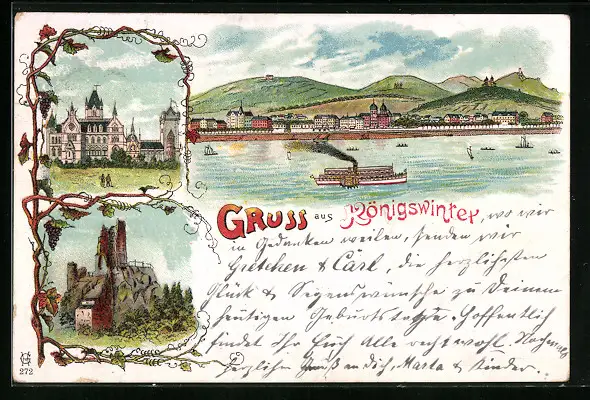 Gruss aus Königswinter, wo wir
in Gedanken weilen, senden wir
Gretchen & Carl, die herzlichsten
Glück & Segenswünsche zu Deinem
heutigen Geburtstage. Hoffentlich
findet Ihr Euch Alle recht wohl. Nochmals
herzlichen Gruß an dich, Marta & Kinder.
272